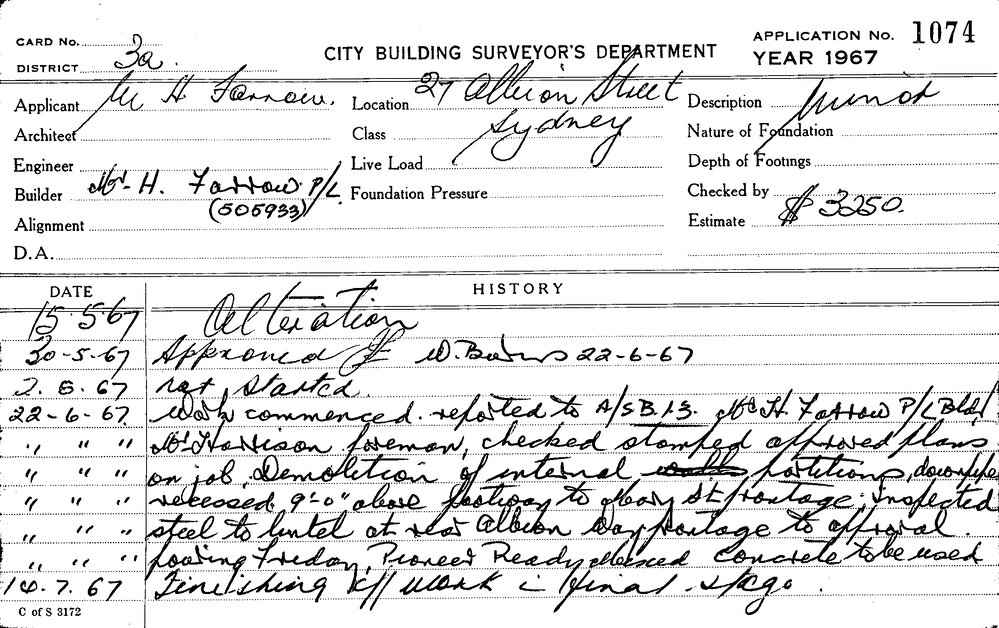 CARD No.
DISTRICT 3a
CITY BUILDING SURVEYOR'S DEPARTMENT
APPLICATION No. 1074
YEAR 1967
Applicant M H Farrow.
Architect
Engineer
Builder Mr H. Farrow P/L.
(505933)
Alignment
D.A.
Location 27 Albion Street
Sydney
Class
Live Load
Foundation Pressure
Description Minor
Nature of Foundation
Depth of Footings
Checked by
Estimate $ 3250.
DATE HISTORY
15.5.67 Alteration
30-5-67 Approved W. 22-6-67
2.6.67 not started.
22-6-67. Work commenced. reported to A/S B.13. Mr H. Farrow P/L Bldr
" " " Mr Harrison foreman, checked stamped approved plans
" " " on job. Demolition of internal walls partitions, downpipe
" " " recessed 9'-0" above footway to St frontage. Inspected
" " " steel to lintel at rear Albion Way frontage to approval.
" " " pouring Friday, Pioneer Ready mixed concrete to be used
14.7.67 Finishing off work in final stage.
C of S 3172